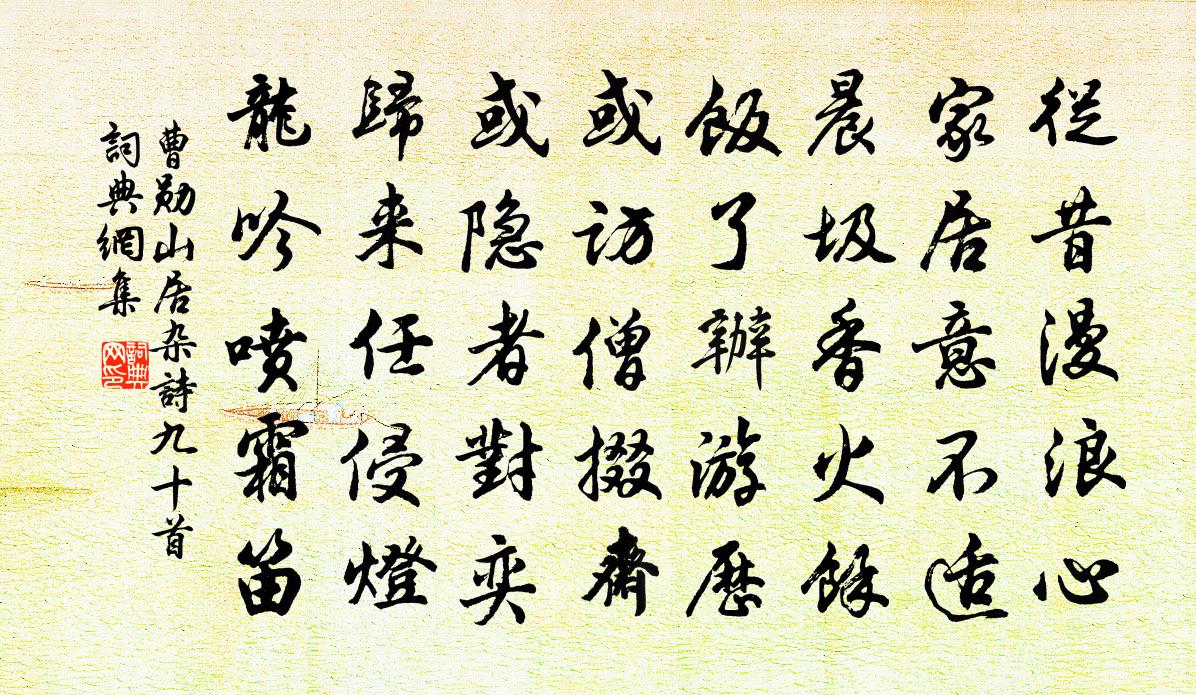 從昔漫浪心
家居意不适
晨圾香火餘
飯了辦游歷
或訪僧掇齋
或隐者對奕
歸来任侵燈
龍吟噴霜笛
曹勛山居杂詩九十首
詞典網集
詞典网印